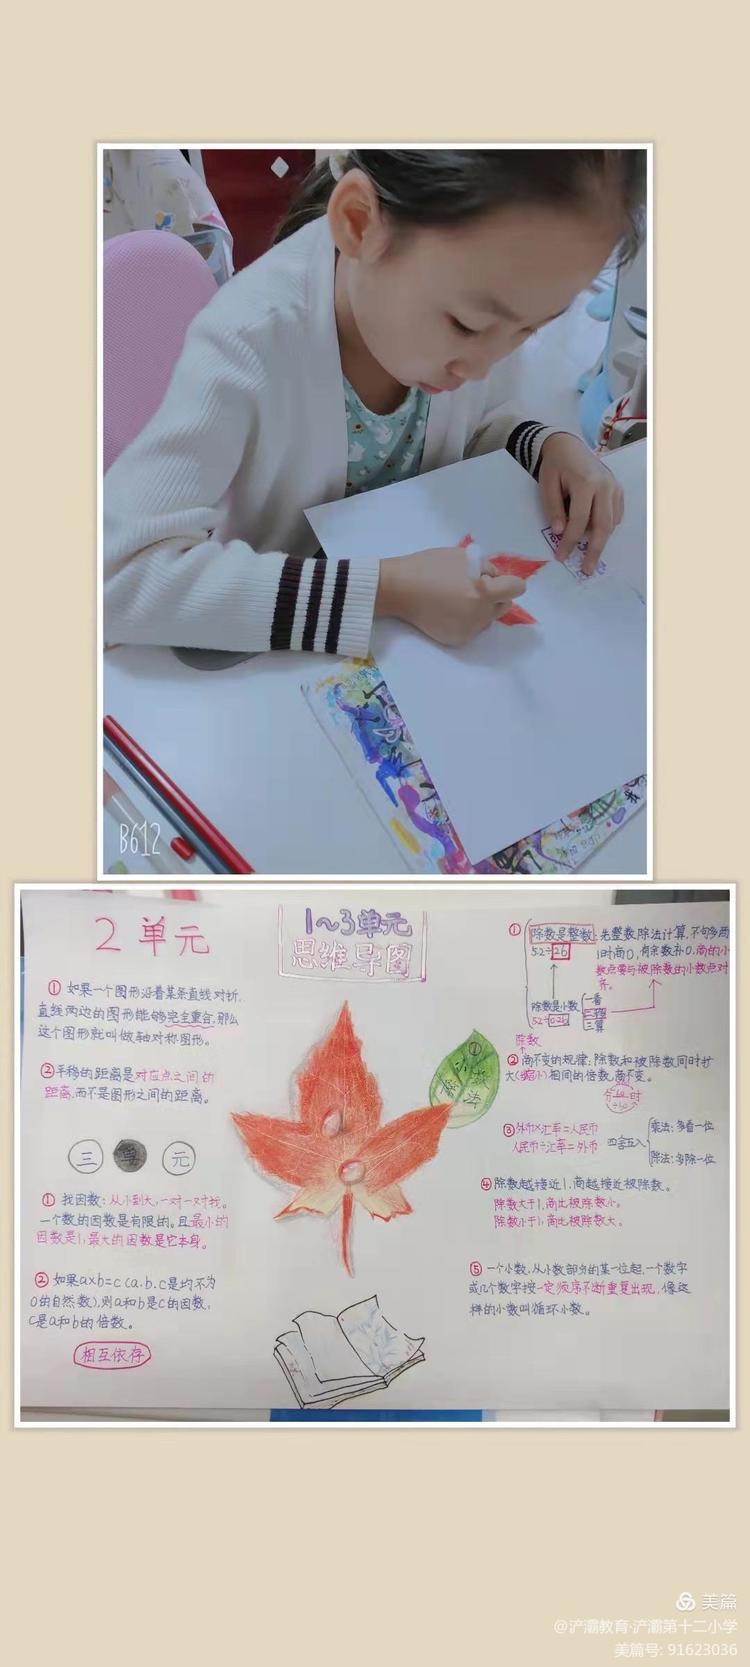 B612
2单元
①如果一个图形沿着某条直线对折,
直线两边的图形能够完全重合,那么
这个图形就叫做轴对称图形。
②平移的距离是对应点之间的
距离,而不是图形之间的距离。
三单元
①找因数:从小到大,一对一对找。
一个数的因数是有限的。且最小的
因数是1,最大的因数是它本身。
②如果a×b=c(a.b.c是均不为
0的自然数),则a和b是c的因数,
c是a和b的倍数。
相互依存
1~3单元
思维导图
①
小数
除法
①除数是整数:先整数除法计算,不够多两
52÷26
1时商0,有余数补0.商的小
数点要与被除数的小数点对
齐。
除数是小数
52÷0.26
一看
三算
除数
②商不变的规律:除数和被除数同时扩
大(缩小)相同的倍数,商不变。
③外币×汇率=人民币
人民币÷汇率=外币
四舍五入
乘法:多看一位
除法:多除一位
④除数越接近1,商越接近被除数。
除数大于1,商比被除数小。
除数小于1,商比被除数大。
⑤一个小数,从小数部分的某一位起,一个数字
或几个数字按一定顺序不断重复出现,像这
样的小数叫循环小数。
美篇
@浐灞教育·浐灞第十二小学
美篇号: 91623036